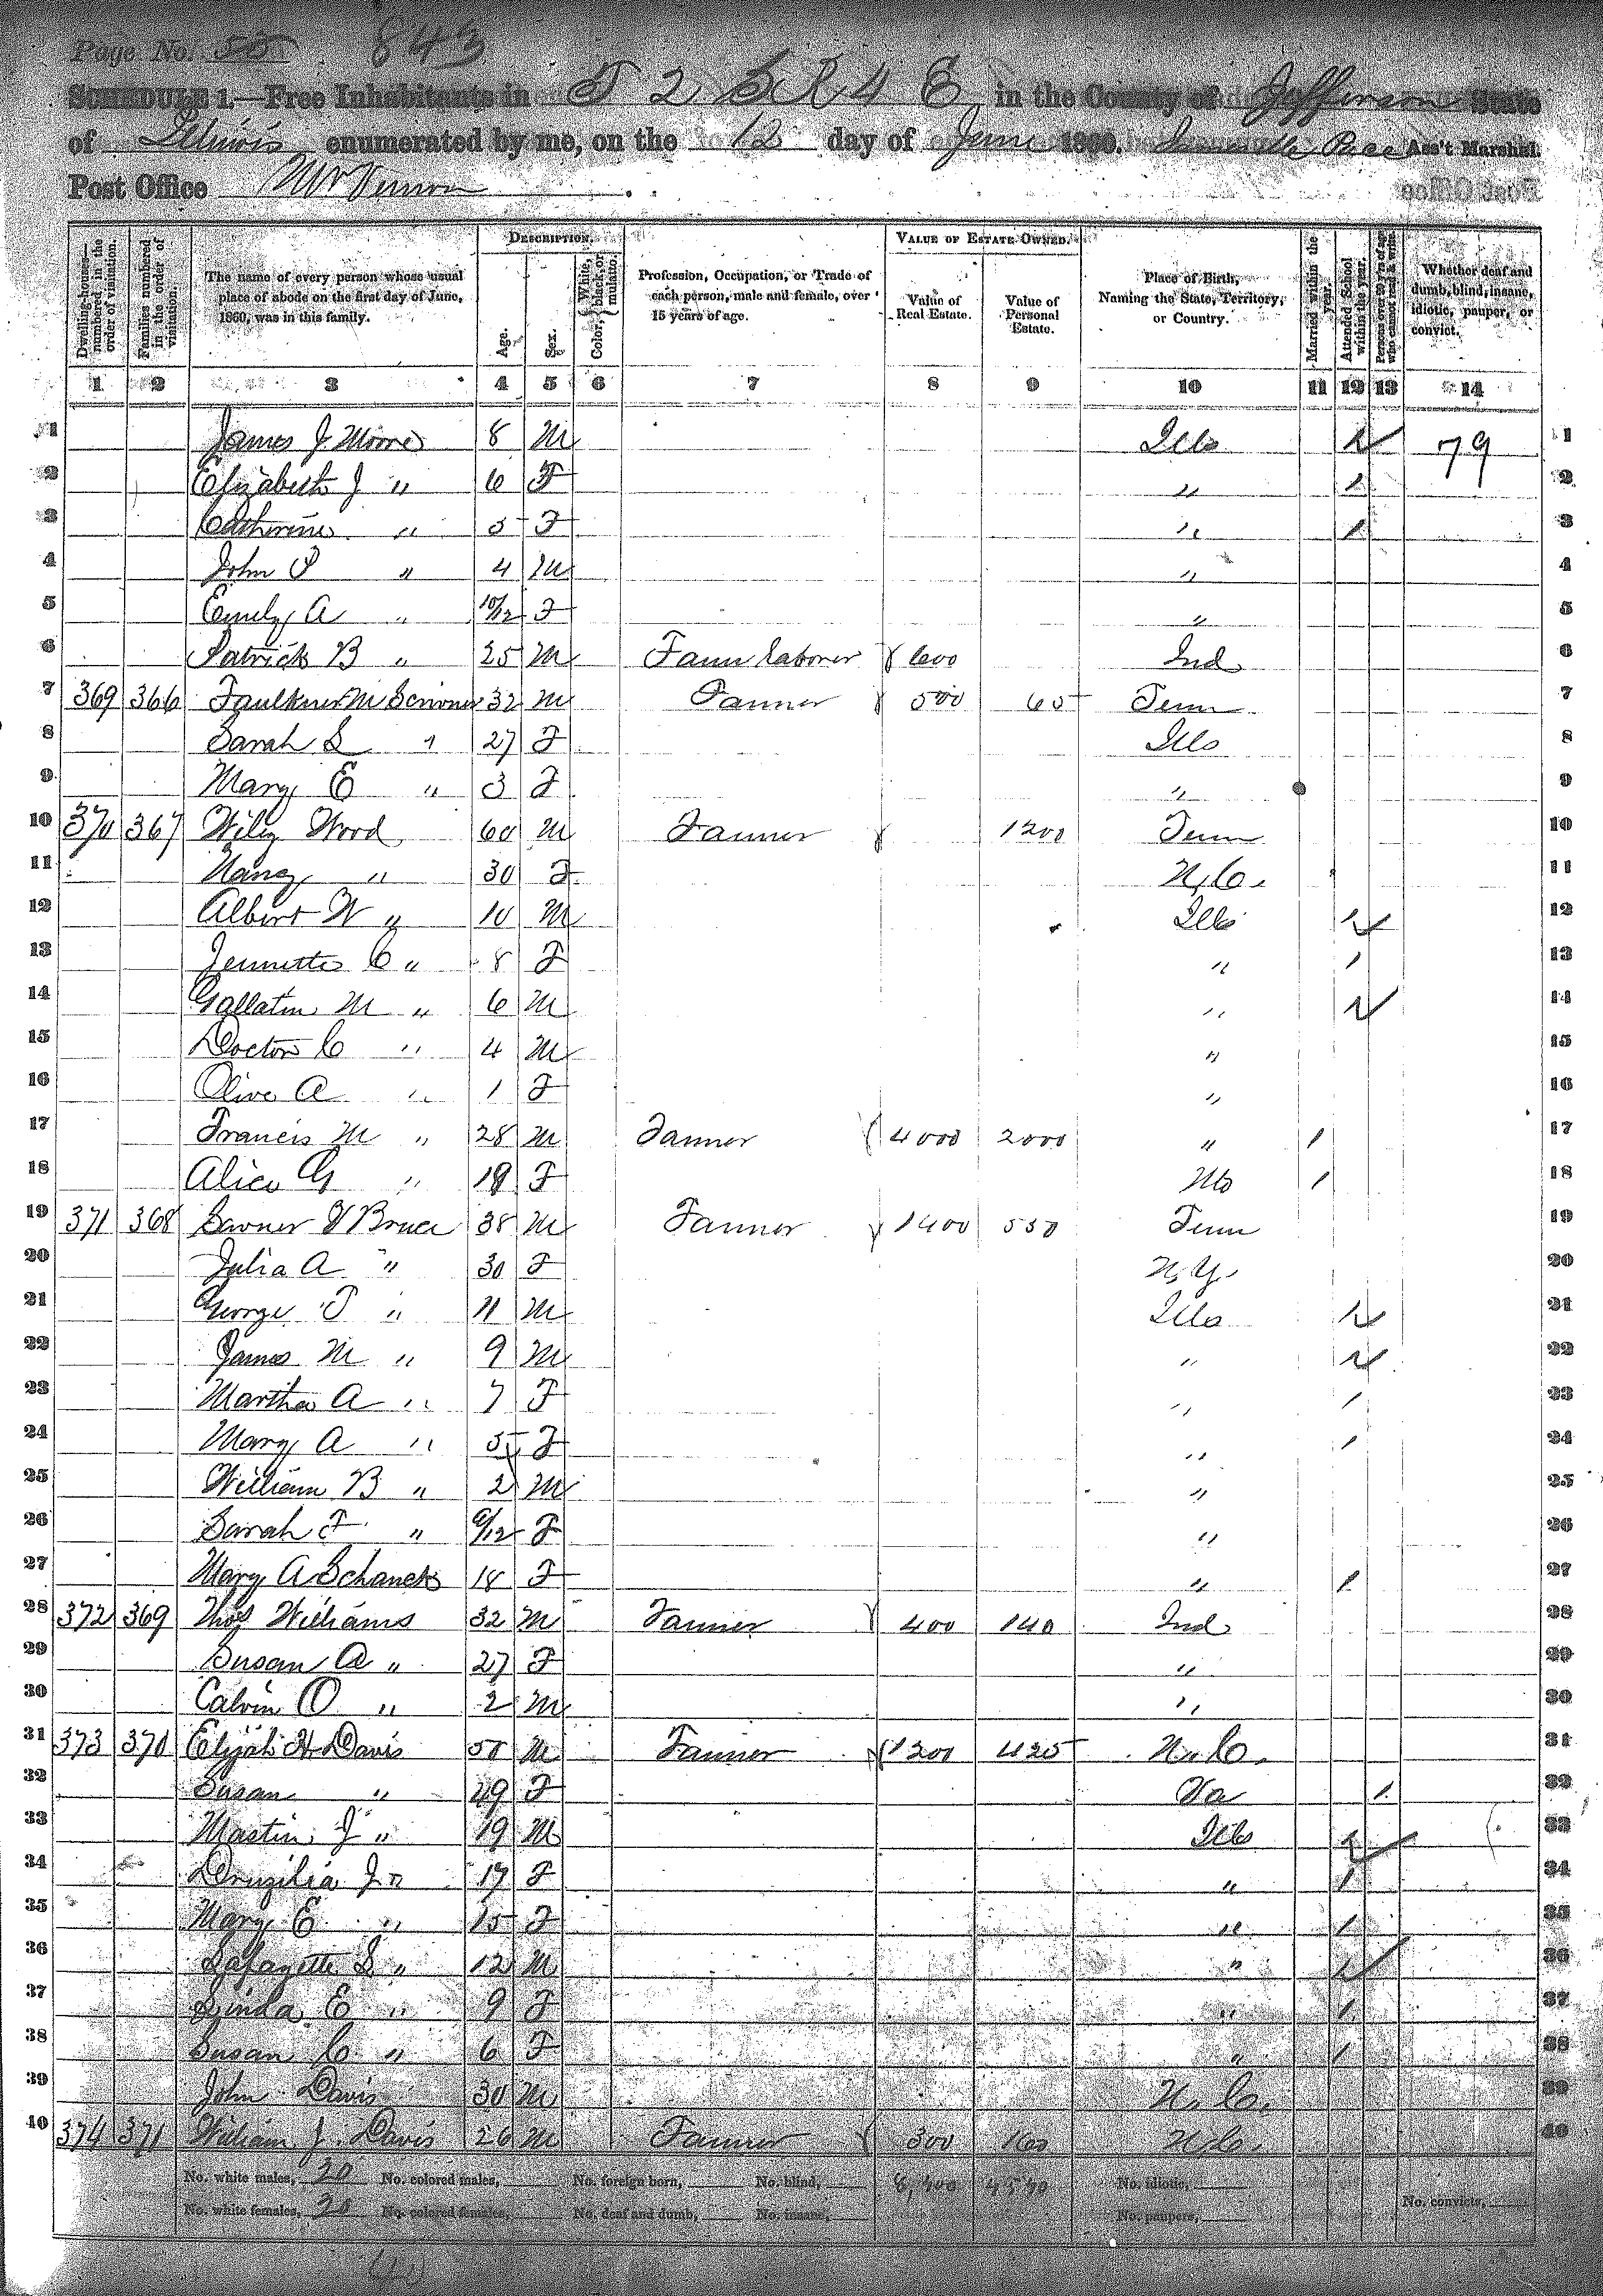 Page No. 55 843
SCHEDULE 1.—Free Inhabitants in T 2 S R 4 E in the County of Jefferson State
of Illinois enumerated by me, on the 12 day of June 1860. Pace Ass't Marshal.
Post Office Mt Vernon
Dwelling-house—numbered in the order of visitation.
Families numbered in the order of visitation.
The name of every person whose usual place of abode on the first day of June, 1860, was in this family.
DESCRIPTION.
Age.
Sex.
Color, White, black, or mulatto.
Profession, Occupation, or Trade of each person, male and female, over 15 years of age.
VALUE OF ESTATE OWNED.
Value of Real Estate.
Value of Personal Estate.
Place of Birth, Naming the State, Territory, or Country.
Married within the year.
Attended School within the year.
Persons over 20 y'rs of age who cannot read & write.
Whether deaf and dumb, blind, insane, idiotic, pauper, or convict.
1 2 3 4 5 6 7 8 9 10 11 12 13 14
1 James J. Moore 8 M Ills 1 79 1
2 Elizabeth J " 6 F " 1 2
3 Catherine " 5 F " 1 3
4 John P " 4 M " 4
5 Emily A " 10/12 F " 5
6 Patrick B " 25 M Farm Laborer 600 Ind 6
7 369 366 Faulkner M Scrivner 32 M Farmer 500 65 Tenn 7
8 Sarah L " 27 F Ills 8
9 Mary E " 3 F " 9
10 370 367 Wily Wood 60 M Farmer 1200 Tenn 10
11 Nancy " 30 F N.C. 11
12 Albert W " 10 M Ills 1 12
13 Jennette C " 8 F " 1 13
14 Gallatin M " 6 M " 1 14
15 Doctor C " 4 M " 15
16 Olive A " 1 F " 16
17 Francis M " 28 M Farmer 4000 2000 " 1 17
18 Alice G " 19 F Mo 1 18
19 371 368 Bruce 38 M Farmer 1400 550 Tenn 19
20 Julia A " 30 F N.Y. 20
21 George T " 11 M Ills 1 21
22 James M " 9 M " 1 22
23 Martha A " 7 F " 1 23
24 Mary A " 5 F " 1 24
25 William B " 2 M " 25
26 Sarah F " /12 F " 26
27 Mary A Schanck 18 F " 1 27
28 372 369 Thos Williams 32 M Farmer 400 140 Ind 28
29 Susan A " 27 F " 29
30 Calvin O " 2 M " 30
31 373 370 Elijah H Davis 50 M Farmer 1200 425 N.C. 31
32 Susan " 49 F Va 1 32
33 Mastin J " 19 M Ills 1 33
34 Druzilia J " 17 F " 1 34
35 Mary E " 15 F " 1 35
36 Lafayette L " 12 M " 1 36
37 Linda E " 9 F " 1 37
38 Susan C " 6 F " 1 38
39 John Davis 30 M N.C. 39
40 374 371 William J. Davis 26 M Farmer 300 160 N.C. 40
No. white males, 20 No. colored males, No. foreign born, No. blind, No. idiotic,
No. white females, 20 No. colored females, No. deaf and dumb, No. insane, No. paupers, No. convicts,